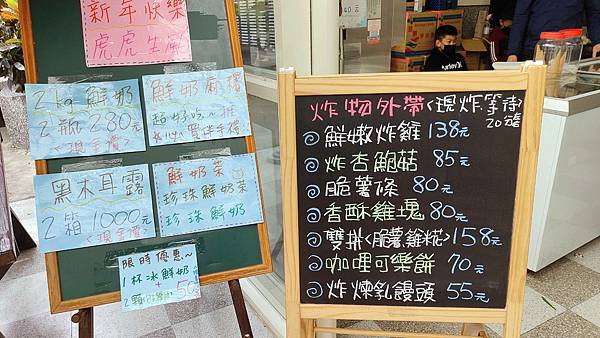 新年快樂
虎虎生風
2kg鮮奶
2瓶280元
<現金價>
鮮奶麻糬
超好吃~推
黑木耳露
2箱1000元
<現金價>
鮮奶茶
珍珠鮮奶茶
珍珠鮮奶
限時優惠~
1杯冰鮮奶
+
2顆
50元
炸物外帶<現炸等待20分鐘>
◎鮮嫩炸雞138元
◎炸杏鮑菇85元
◎脆薯條80元
◎香酥雞塊80元
◎雙拼<脆薯.雞米花>158元
◎咖哩可樂餅70元
◎炸煉乳饅頭55元